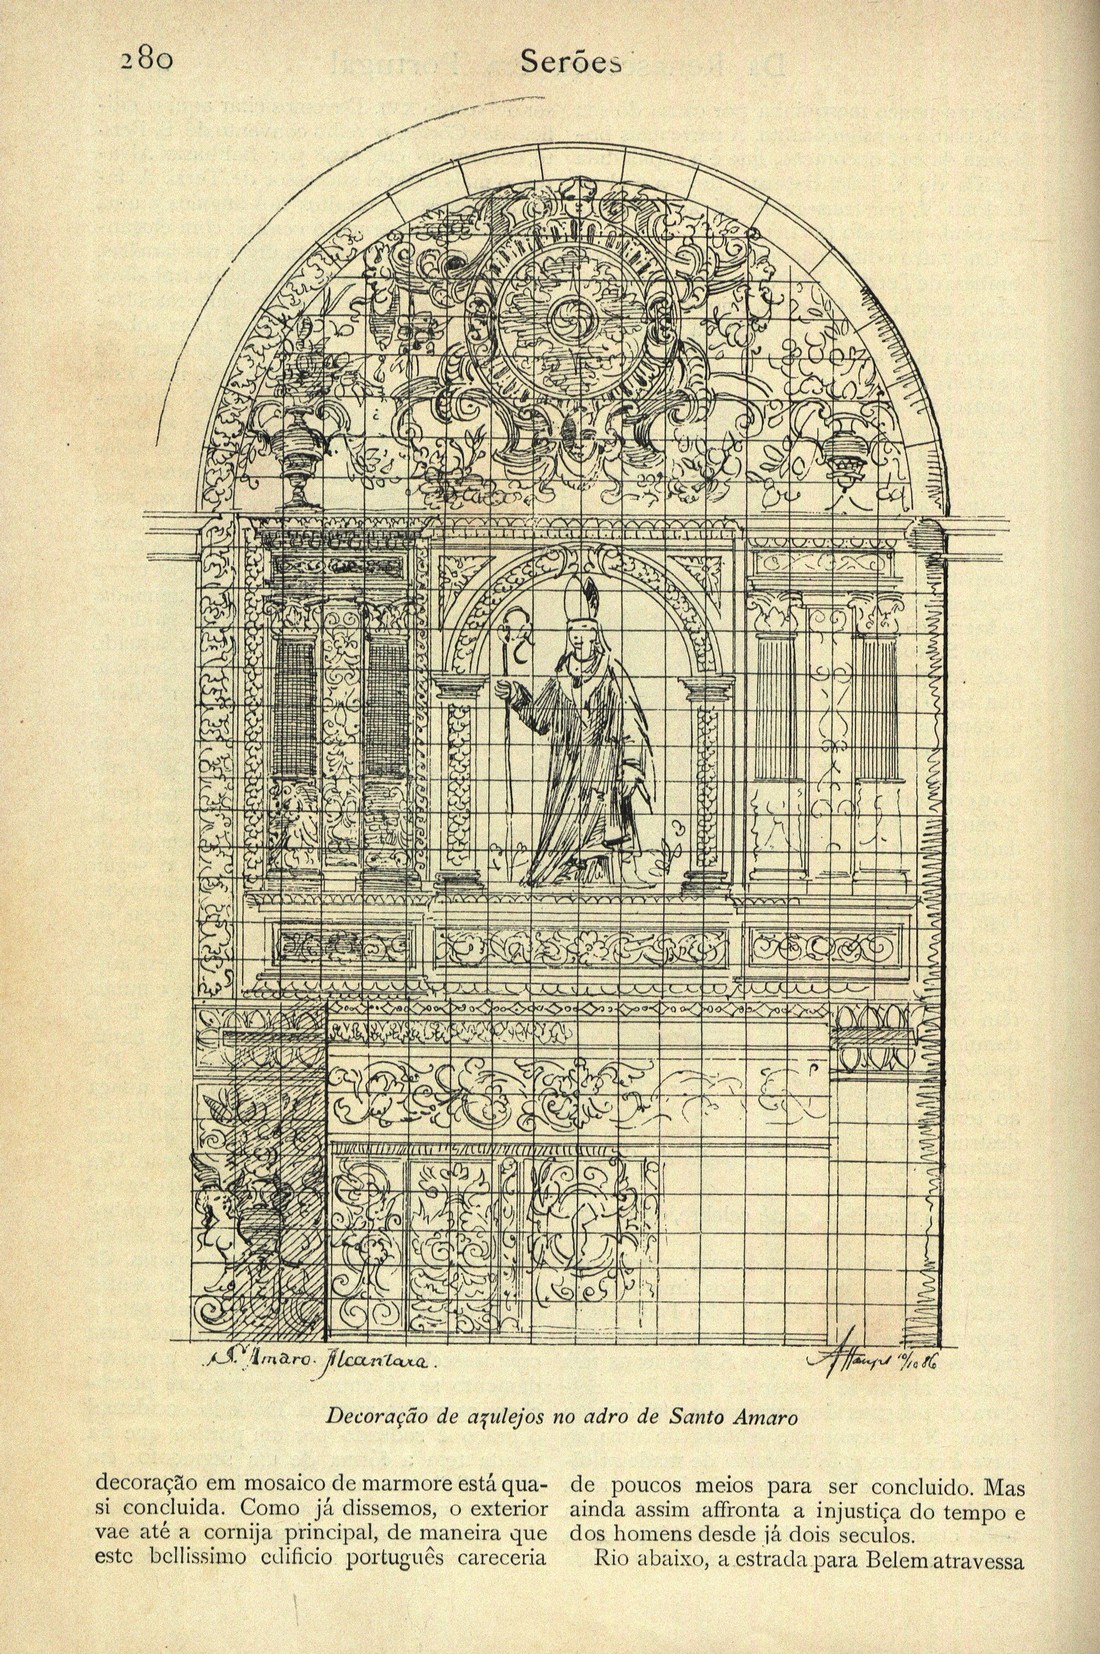 280
Serões
S.to Amaro. Alcantara.
AHaupt 10/10 86
Decoração de azulejos no adro de Santo Amaro
decoração em mosaico de marmore está qua-
si concluida. Como já dissemos, o exterior
vae até a cornija principal, de maneira que
este bellissimo edificio português careceria
de poucos meios para ser concluido. Mas
ainda assim affronta a injustiça do tempo e
dos homens desde já dois seculos.
Rio abaixo, a estrada para Belem atravessa